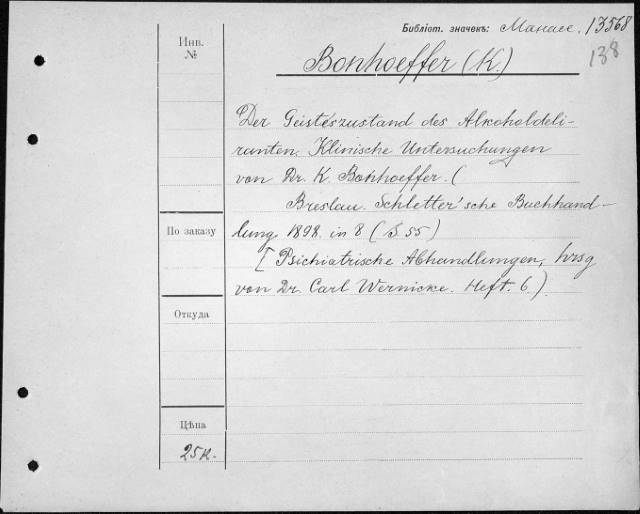 Библіот. значекъ: Манасс. 13568
138
Инв.
№
Bonhoeffer (K.)
Der Geisteszustand des Alkoholdeli-
ranten. Klinische Untersuchungen
von Dr. K. Bonhoeffer. (
Breslau. Schletter'sche Buchhand-
По заказу
lung 1898. in 8 (S. 55)
[ Psichiatrische Abhandlungen, hrsg
von Dr. Carl Wernicke. Heft. 6.)
Откуда
Цѣна
25 к.